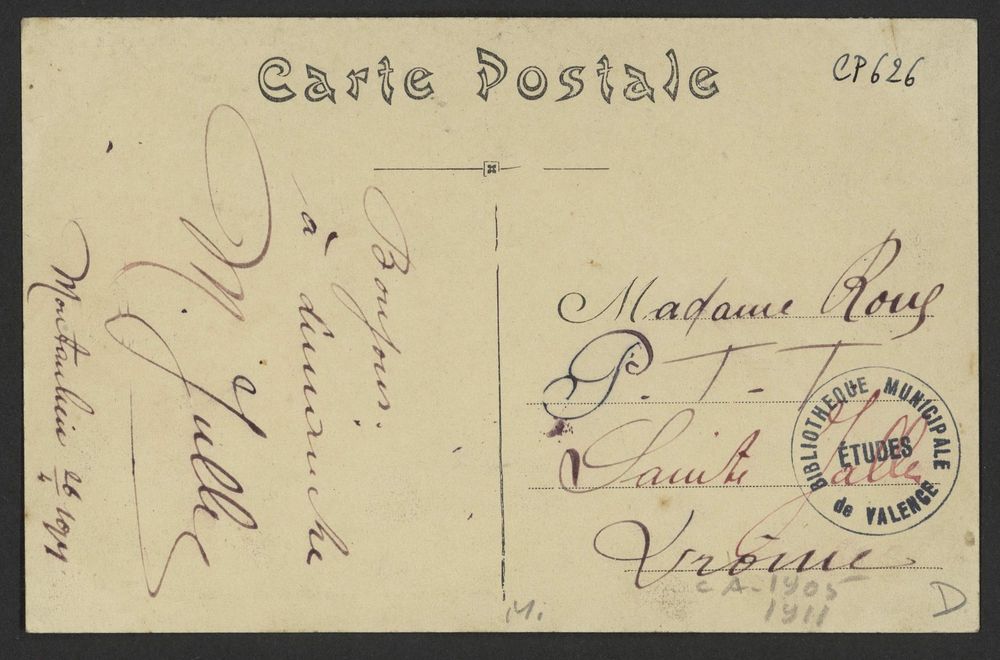 Carte Postale
CP626
Bonjour.
à dimanche
Montaulieu 26/4 1911
Madame Roux
P. T - T
Sainte Jalle
Drôme
BIBLIOTHEQUE MUNICIPALE
ÉTUDES
de VALENCE
CA-1905
1911
M.
D